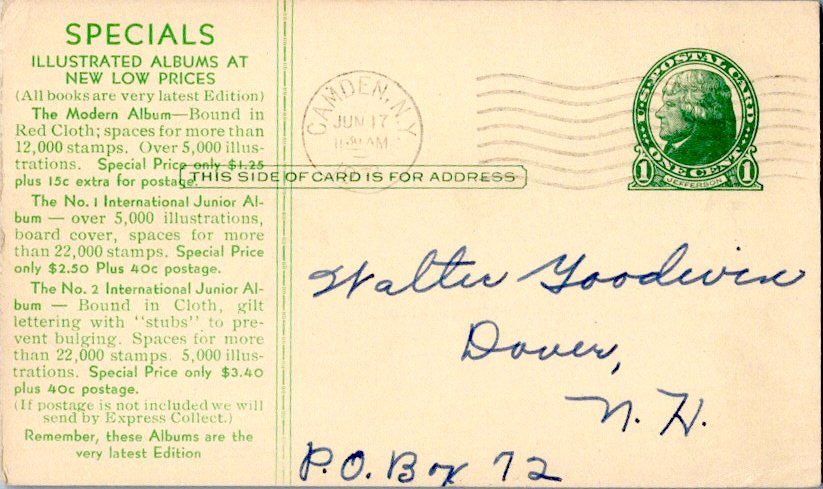 SPECIALS
ILLUSTRATED ALBUMS AT
NEW LOW PRICES
(All books are very latest Edition)
The Modern Album—Bound in
Red Cloth; spaces for more than
12,000 stamps. Over 5,000 illus-
trations. Special Price only $1.25
plus 15c extra for postage.
The No. 1 International Junior Al-
bum — over 5,000 illustrations,
board cover, spaces for more
than 22,000 stamps. Special Price
only $2.50 Plus 40c postage.
The No. 2 International Junior Al-
bum — Bound in Cloth, gilt
lettering with "stubs" to pre-
vent bulging. Spaces for more
than 22,000 stamps. 5,000 illus-
trations. Special Price only $3.40
plus 40c postage.
(If postage is not included we will
send by Express Collect.)
Remember, these Albums are the
very latest Edition
CAMDEN, N.Y.
JUN 17
AM
U.S. POSTAL CARD
1 ONE CENT 1
JEFFERSON
THIS SIDE OF CARD IS FOR ADDRESS
Walter Goodwin
Dover,
N. H.
P.O. Box 72